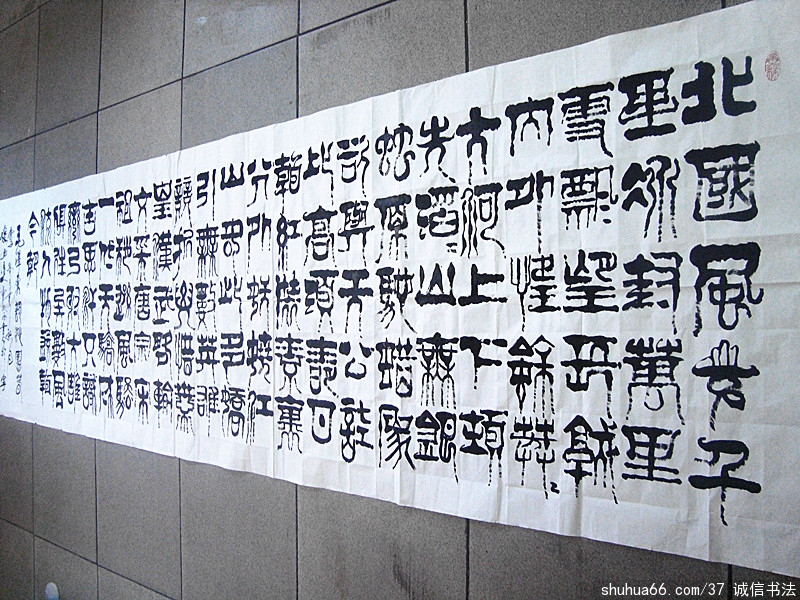 北國風光千
里冰封萬里
雪飄望長城
內外惟餘莽〻
大河上下頓
失滔山舞銀
蛇原馳蜡象
欲與天公試
比高須晴日
看紅裝素裹
分外妖嬈江
山如此多嬌
引無數英雄
競折腰惜秦
皇漢武略輸
文采唐宗宋
祖稍遜風騷
一代天驕成
吉思汗只識
彎弓射大雕
俱往矣數風
流人物還看
今朝
毛澤東詞沁園春
shuhua66.com/37 诚信书法